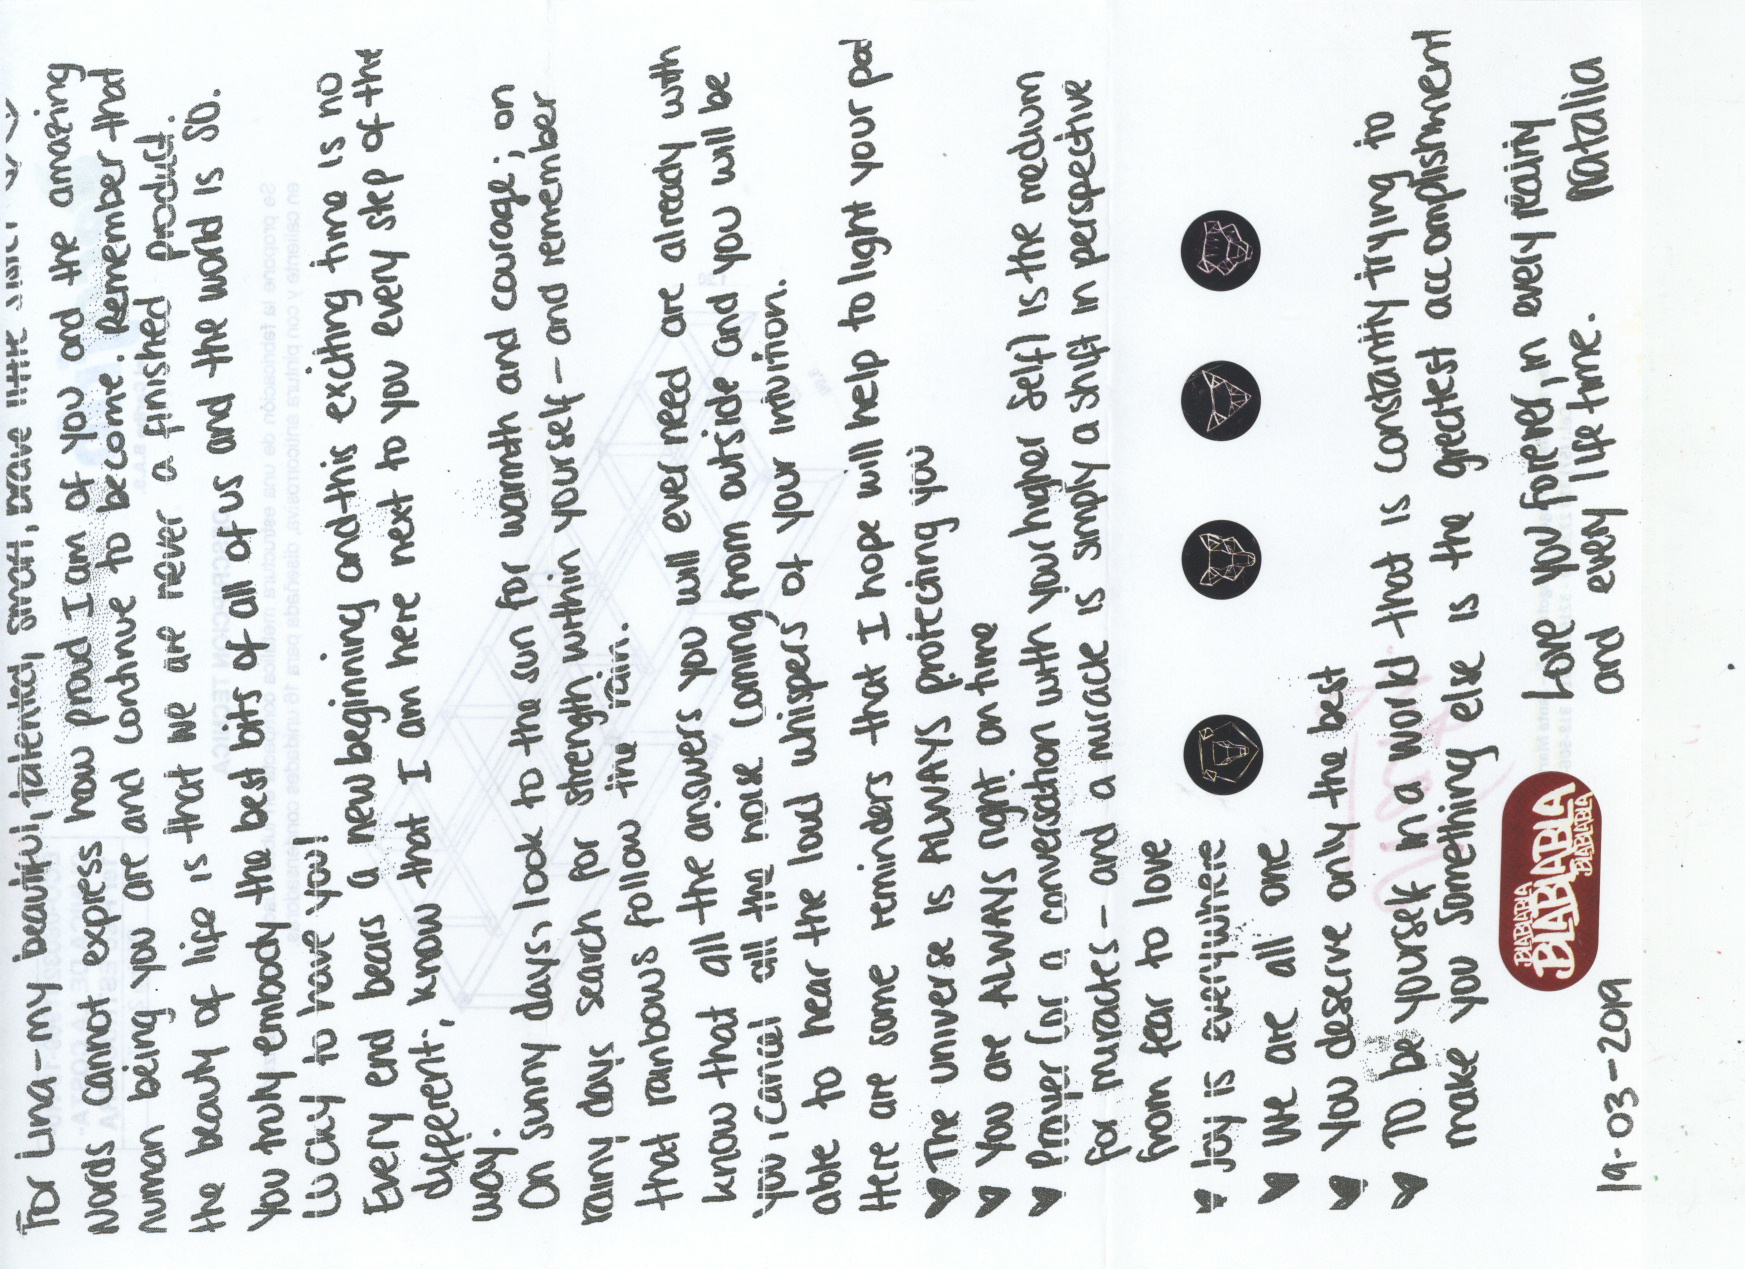 For Lina-my beautiful, talented, smart, brave little sister
Words cannot express how proud I am of you and the amazing
human being you are and continue to become. Remember that
the beauty of life is that we are never a finished product.
You truly embody the best bits of all of us and the world is SO.
LUCKY to have you!
Every end bears a new beginning and this exciting time is no
different; know that I am here next to you every step of the
way.
On sunny days, look to the sun for warmth and courage; on
rainy days search for strength within yourself - and remember
that rainbows follow the rain.
know that all the answers you will ever need are already with
you, cancel all the noise coming from outside and you will be
able to hear the loud whispers of your intuition.
Here are some reminders that I hope will help to light your pat
The universe is ALWAYS protecting you
You are ALWAYS right on time
Prayer (or a conversation with your higher self) is the medium
for miracles - and a miracle is simply a shift in perspective
from fear to love
Joy is everywhere
We are all one
You deserve only the best
TO be yourself in a world that is constantly trying to
make you something else is the greatest accomplishment
BLABLABLA
BLABLABLA
BLABLABLA
Love you forever, in every
and every life time.
Natalia
19-03-2019